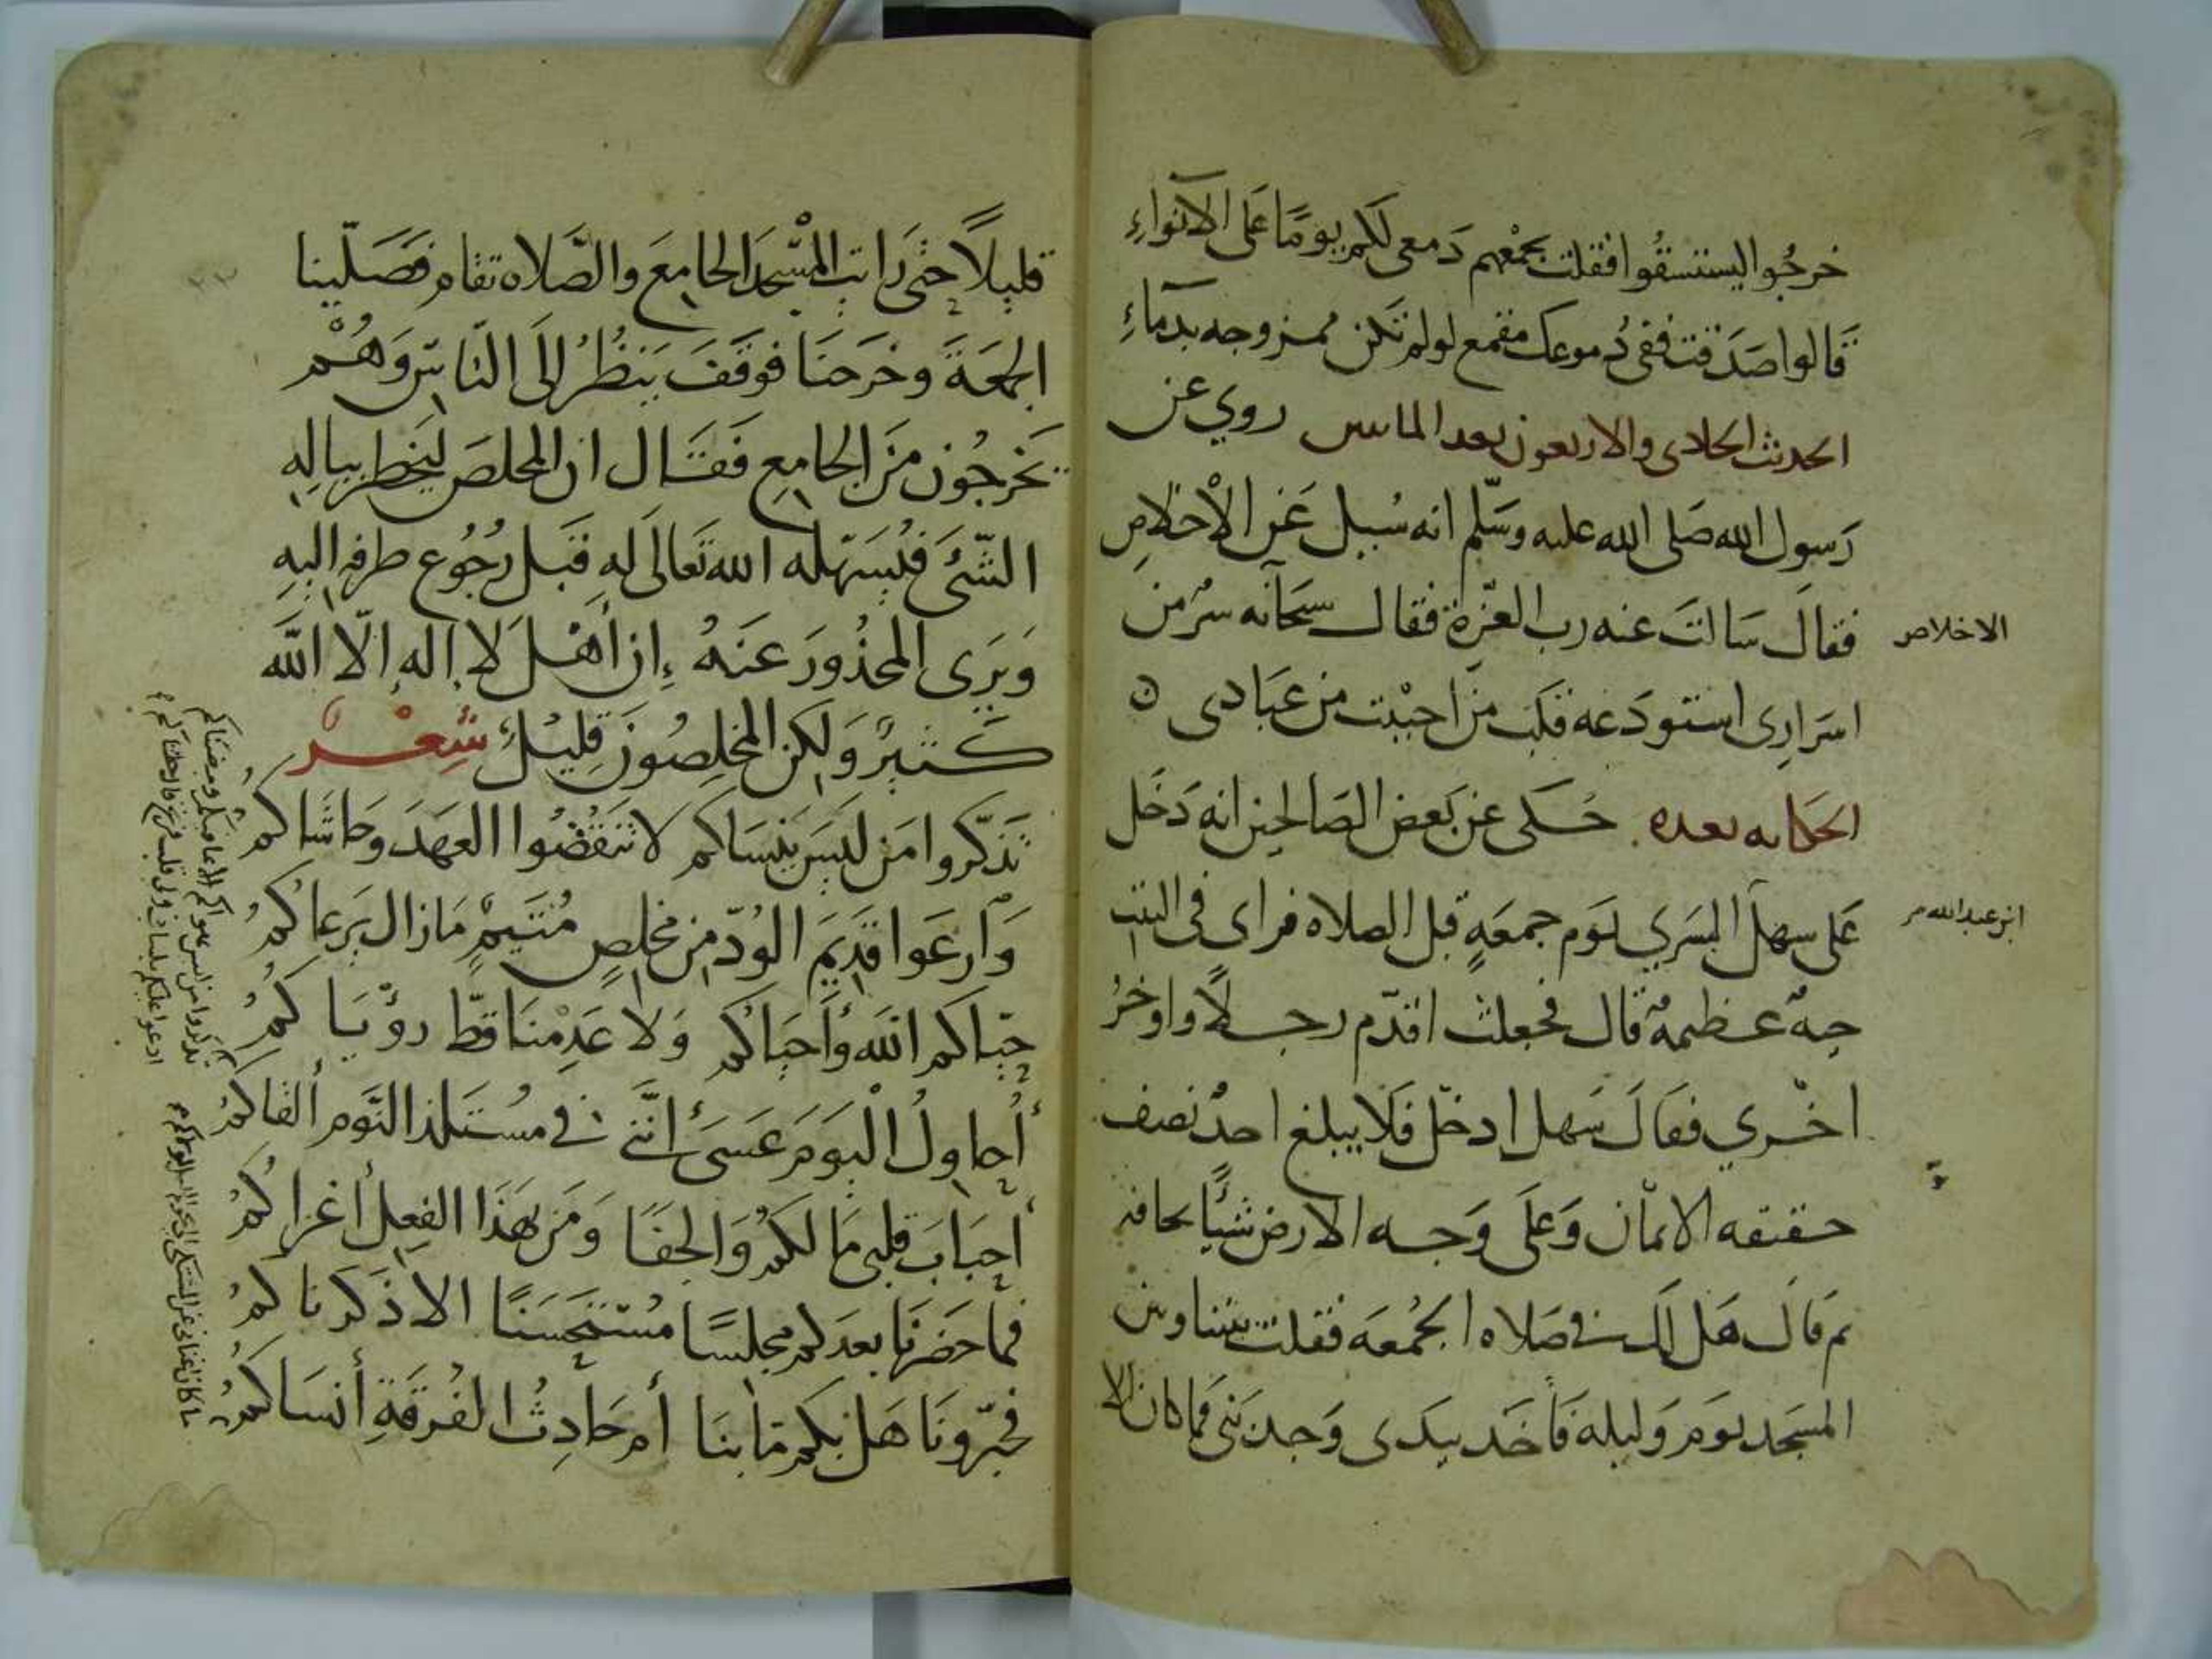 خرجوا ليستسقوا فقلت بجمعهم دمعى لكم يوما على الانواءِ
قالوا صدقت ففى دموعك مقمع لو لم تكن ممزوجه بدمآءِ
الحديث الحادى والاربعون بعد الماىىں روي عن
رسول الله صلى الله عليه وسلم انه سُيل عن الاخلاص
فقال سالت عنه رب العزة فقال سبحآنه سر من
اسرارى استودعه قلب من احببت من عبادى
الحكايه بعده حكى عن بعض الصالحين انه دخل
على سهل التسري يوم جمعةٍ قبل الصلاه فراى فى البيت
حيةً عظيمةً قال فجعلت اقدم رجلاً واوخرُ
اخري فقال سهل ادخل فلا يبلغ احدٌ نصف
حقيقه الايمان وعلى وجه الارض شيًا يخافه
ثم قال هل لك فى صلاه الجمعه فقلت بيننا وبين
المسجد يوم وليله فاخذ بيدى وجذبنى فما كان الا
الاخلاص
ابن عبد الله
قليلاً حتى رايت المسجد الجامع والصلاه تقام فصلينا
الجمعة وخرجنا فوقف ينظُرُ إلى الناس وهُمْ
يخرجُون من الجامِعِ فقال ان المخلص ليخطر ببالِهِ
الشّئَ فيُسهّله الله تعالى له قبل رجُوع طرفه اليهِ
ويَرَى المحذُورَ عنهُ إن أهل لا اله إلّا الله
كثيرٌ ولكن المخلِصُون قليلٌ شِعْرٌ
تذكروا من ليس ينساكم لا تنقضُوا العهدَ وحاشاكمُ
وارعوا قديم الوُدّ من مخلصٍ مُتيمٍ ما زال يرعاكمُ
حيّاكم الله وأحياكم ولا عدِمنا قطّ رؤياكمُ
أُحاولُ اليوم عسى أنّنى فى مستلذ النّوم ألقاكمُ
أحبابَ قلبى ما لكمُ والجفا ومن بهذا الفِعِل أغراكمُ
فما حضرنا بعدكم مجلسًا مستحسنًا الا ذكرناكمُ
فخبّرونا هل بكم ما بنا أم حادِثُ الفُرقةِ أنساكمُ